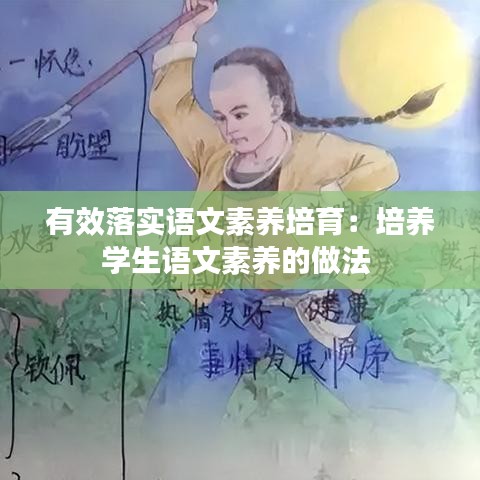 一怀念：
盼望
有效落实语文素养培育：培养
学生语文素养的做法
热情友好 健康
事情发展顺序
钦佩